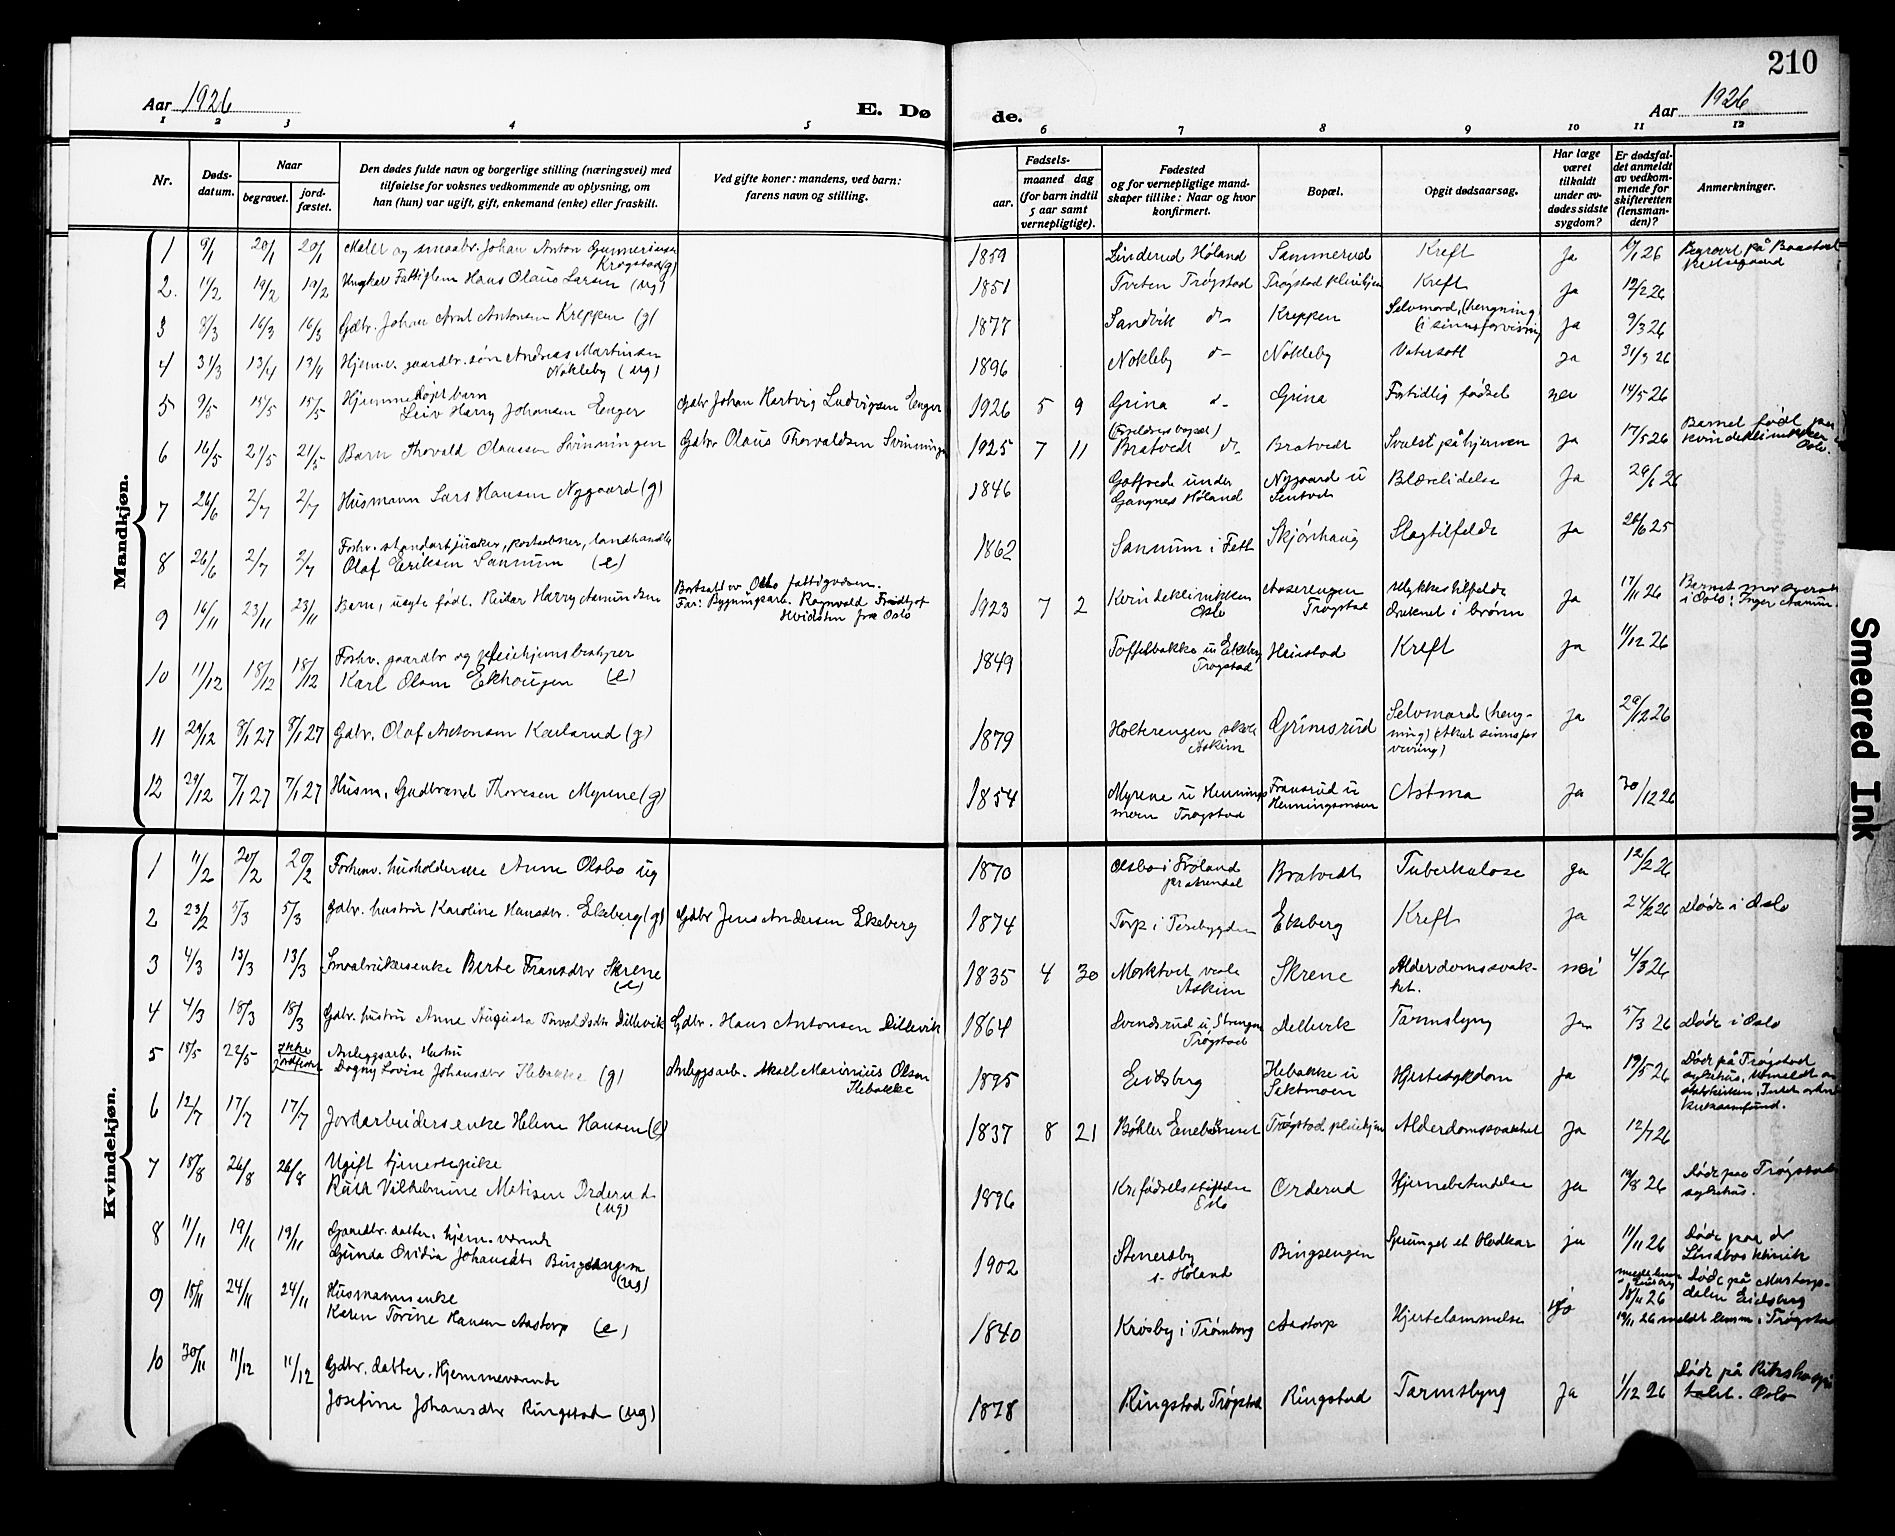 210
Aar 1926
E. Dø
de.
Aar 1926
1 2 3 4 5 6 7 8 9 10 11 12
Nr.
Døds-
datum.
Naar
begravet.
jord-
fæstet.
Den dødes fulde navn og borgerlige stilling (næringsvei) med
tilføielse for voksnes vedkommende av oplysning, om
han (hun) var ugift, gift, enkemand (enke) eller fraskilt.
Ved gifte koner: mandens, ved barn:
farens navn og stilling.
Fødsels-
aar.
maaned dag
(for barn indtil
5 aar samt
vernepligtige).
Fødested
og for vernepligtige mand-
skaper tillike: Naar og hvor
konfirmert.
Bopæl.
Opgit dødsaarsag.
Har læge
været
tilkaldt
under av-
dødes sidste
sygdom?
Er dødsfal-
det anmeldt
av vedkom-
mende for
skifteretten
(lensman-
den)?
Anmerkninger.
Mandkjøn.
1 9/1 20/1 20/1 Maler og smaabr. Johan Anton Gunneriussen
Krogstad (g)
1859 Linderud Høland Sammerud Kreft Ja 17/1 26 Begravet på Baastad
Kirkegaard
2. 11/2 19/2 19/2 Ungkar Fattiglem Hans Olaus Larsen (ug)
1851 Tveten Trøgstad Trøgstad pleiehjem Kreft Ja 12/2 26
3 8/3 16/3 16/3 Gdbr. Johan Arnt Antonsen Kreppen (g)
1877 Sandvik do Kreppen Selvmord, (hengning)
(i sinnsforvirring) Ja 9/3 26
4 31/3 13/4 13/4 Hjemmev. gaardbr. søn Andreas Martinsen
Nokleby (ug)
1896 Nokleby do Nokleby Vatersott Ja 31/3 26
5 9/5 15/5 15/5 Hjemmedøpt barn
Leiv Harry Johansen Enger Gdbr Johan Hartvig Ludvigsen Enger
1926 5 9 Grina do Grina Fortidlig fødsel nei 14/5 26
6 16/5 21/5 21/5 Barn Thorvald Olaussen Svinningen Gdbr Olaus Thorvaldsen Svinningen
1925 7 11 (Foreldres bopæl)
Bratvedt do Bratvedt Svulst på hjernen Ja 17/5 26 Barnet født paa
kvindeklinikken
Oslo.
7 26/6 2/7 2/7 Husmann Lars Hansen Nygaard (g)
1846 under
Gangnes Høland Nygaard u
Blærelidelse Ja 29/6 26
8 26/6 2/7 2/7 Forhv. standartjunker, postaabner, landhandler
Olaf Eriksen Sannum (e)
1862 Sannum i Fett Skjønhaug Slagtilfelde Ja 28/6 25
9 16/11 23/11 23/11 Barn, uegte født. Reidar Harry Aamundsen Bortsatt av Oslo fattigvæsen.
Far: Bygningsarb. Ragnvald Fridtjof
Hvidsten fra Oslo
1923 7 2 Kvindeklinikken
Oslo Aaserengen
Trøgstad Ulykkestilfelde
druknet i brønn Ja 17/11 26 Barnets mor
i Oslo: Inger Aamun.
10 11/12 18/12 18/12 Forhv. gaardbr og pleiehjemsbestyrer
Karl Olsen Ekhougen (e)
1849 Toffelbakke u Ekeberg
Trøgstad Heiestad Kreft Ja 11/12 26
11 29/12 8/1 27 8/1 27 Gdbr. Olaf Antonsen Karlsrud (g)
1879 Holterengen skole
Askim Grimsrud Selvmord (heng-
ning) (Akut sinnsfor
virring) Ja 29/12 26
12 29/12 7/1 27 7/1 27 Husm. Gudbrand Thoresen Myrene (g)
1854 Myrene u Hennings
moen Trøgstad Fransrud u
Henningsmoen Astma Ja 30/12 26
Kvindekjøn.
1 11/2 20/2 20/2 Forhenv. husholderske Anne Olsbo ug
1870 Olsbo i Froland
pr Arendal Bratvedt Tuberkulose ja 12/2 26
2 23/2 5/3 5/3 Gdbr. hustru Karoline Hansdtr. Ekeberg (g) Gdbr Jens Andersen Ekeberg
1874 Torp i Ekeberg Kreft Ja 24/2 26 Døde i Oslo
3 4/3 13/3 13/3 Smaabrukerenke Berte Fransdtr Skrene
(e)
1835 4 30 Morktvet vesle
Askim Skrene Alderdomssvak-
het. nei 4/3 26
4 4/3 18/3 18/3 Gdbr. hustru Anne Augusta Torvaldsdtr Dillevik Gdbr. Hans Antonsen Dillevik
1864 Svendsrud u Strengen
Trøgstad Dellevik Tarmslyng Ja 5/3 26 Døde i Oslo
5 18/5 22/5 ikke
jordfestet Anleggsarb. Hustru
Dagny Lovise Johansdtr Ilebakke (g) Anleggsarb. Aksel Marinius Olsen
Ilebakke
1895 Eidsberg Ilebakke u
Sektmoen Hjertesykdom Ja 19/5 26 Døde på Trøgstad
sykehus. Utmeldt av
statskirken,
kirkesamfund.
6 12/7 17/7 17/7 Jordarbeidersenke Helene Hansen (e)
1837 8 21 Bøhler Enebakk Trøgstad pleiehjem Alderdomssvakhet Ja 12/7 26
7 18/8 26/8 26/8 Ugift tjenestepike
Ruth Vilhelmine Matisen Orderud
(ug)
1896 Kr. fødselsstiftelse
Oslo Orderud Hjernebetendelse Ja 19/8 26 Døde paa Trøgstad
sykehus.
8 11/11 19/11 19/11 Gaardbr. datter, hjem. værende
Gunda Ovidia Johansdtr Bingsengen
(ug)
1902 Stenersby
i Høland Bingsengen Sprunget et blodkar ja 11/11 26 Døde paa dr
Lindboes klinik
9 18/11 24/11 24/11 Husmannsenke
Karen Torine Hansen Aastorp (e)
1840 Krosby i Trømborg Aastorp Hjertelammelse Ja 18/11 26 Døde på Mustorps-
dalen Eidsberg
19/11 26 meldt lensm i Trøgstad
10 30/11 11/12 11/12 Gdbr. datter. Hjemmeværende
Josefine Johansdtr Ringstad (ug)
1878 Ringstad Trøgstad Ringstad Tarmslyng Ja 1/12 26 Døde på Rikshospi
talet. Oslo
Smeared Ink